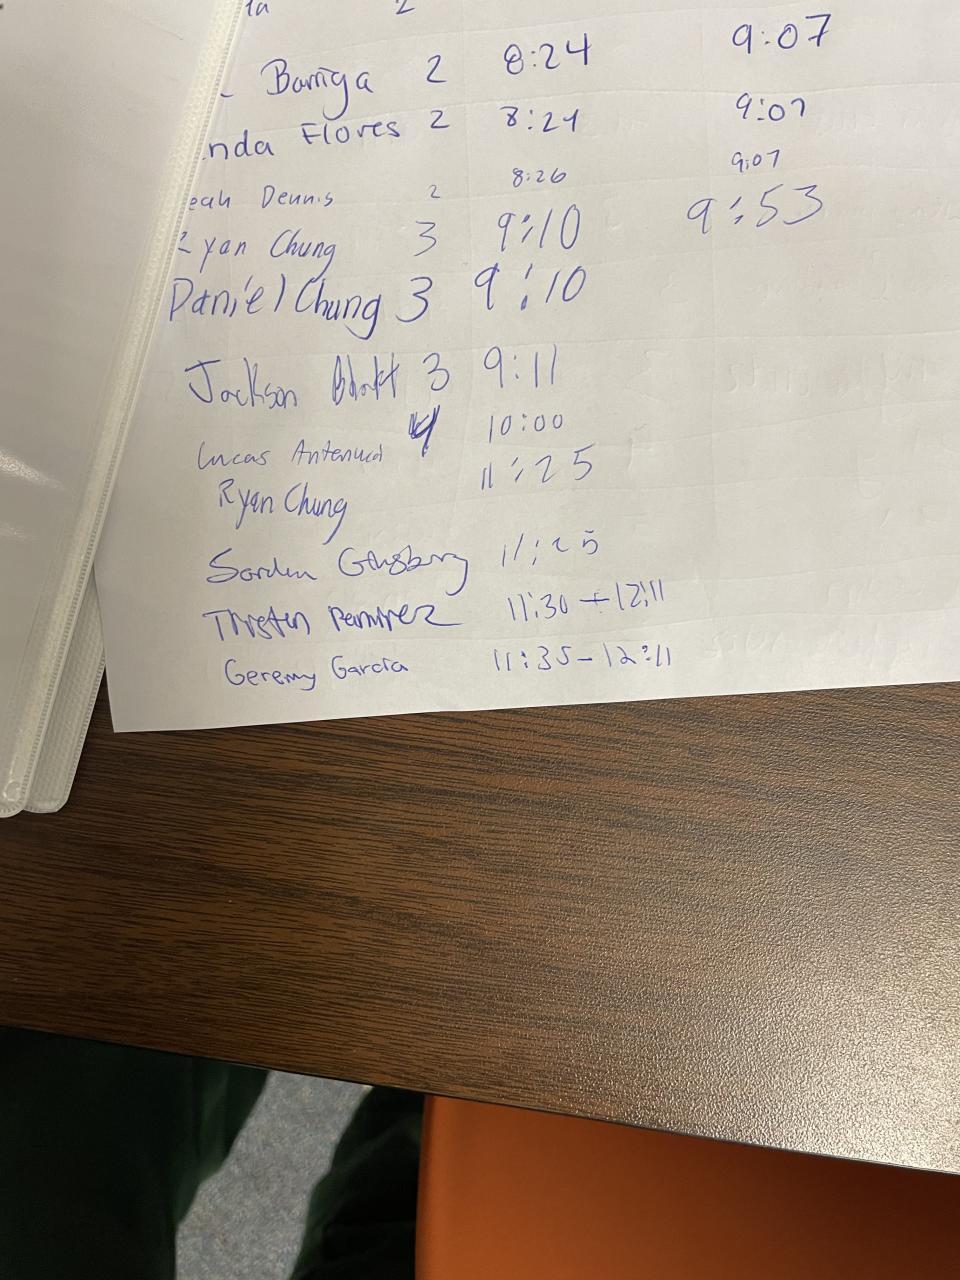 2
Barriga 2 8:24 9:07
nda Flores 2 8:24 9:07
eah Dennis 2 8:26 9:07
Ryan Chung 3 9:10 9:53
Daniel Chung 3 9:10
Jackson 3 9:11
Lucas Antenucci 4 10:00
Ryan Chung 11:25
11:25
Ramirez 11:30 - 12:11
Geremy Garcia 11:35 - 12:11